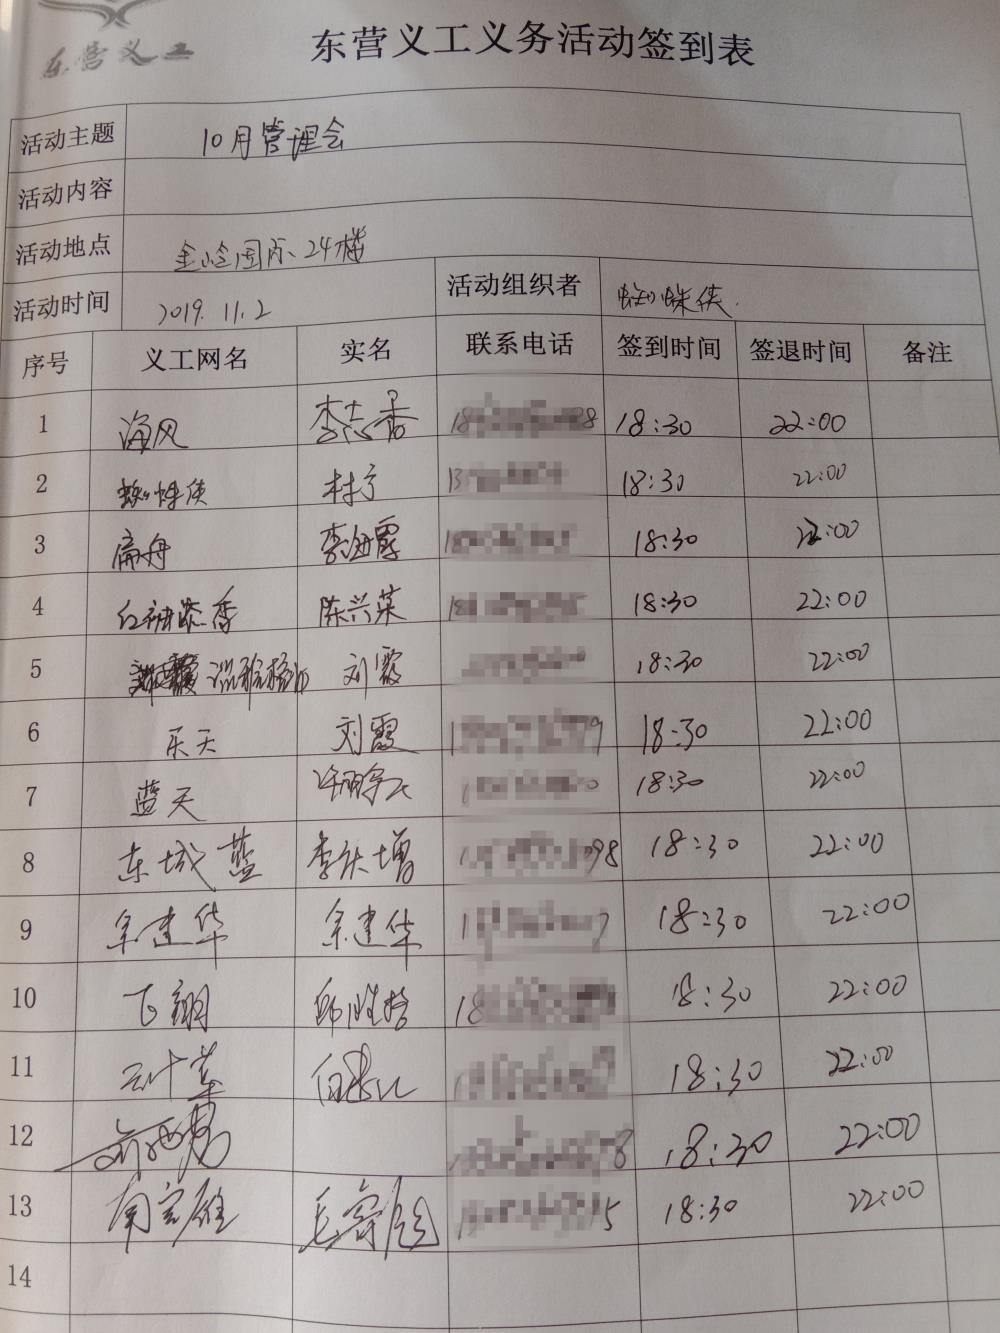 东营义工
东营义工义务活动签到表
活动主题 10月管理会
活动内容
活动地点 金岭国际24楼
活动时间 2019.11.2 活动组织者 蜘蛛侠
序号 义工网名 实名 联系电话 签到时间 签退时间 备注
1 海风 李志香 18:30 22:00
2 蜘蛛侠 林宁 18:30 22:00
3 扁舟 李海霞 18:30 22:00
4 红袖添香 陈兴菜 18:30 22:00
5 刘霞 18:30 22:00
6 乐天 刘霞 18:30 22:00
7 蓝天 18:30 22:00
8 东城蓝 李庆增 098 18:30 22:00
9 余建华 余建华 18:30 22:00
10 飞翔 18 18:30 22:00
11 三叶草 18:30 22:00
12 18:30 22:00
13 南宫雁 15 18:30 22:00
14